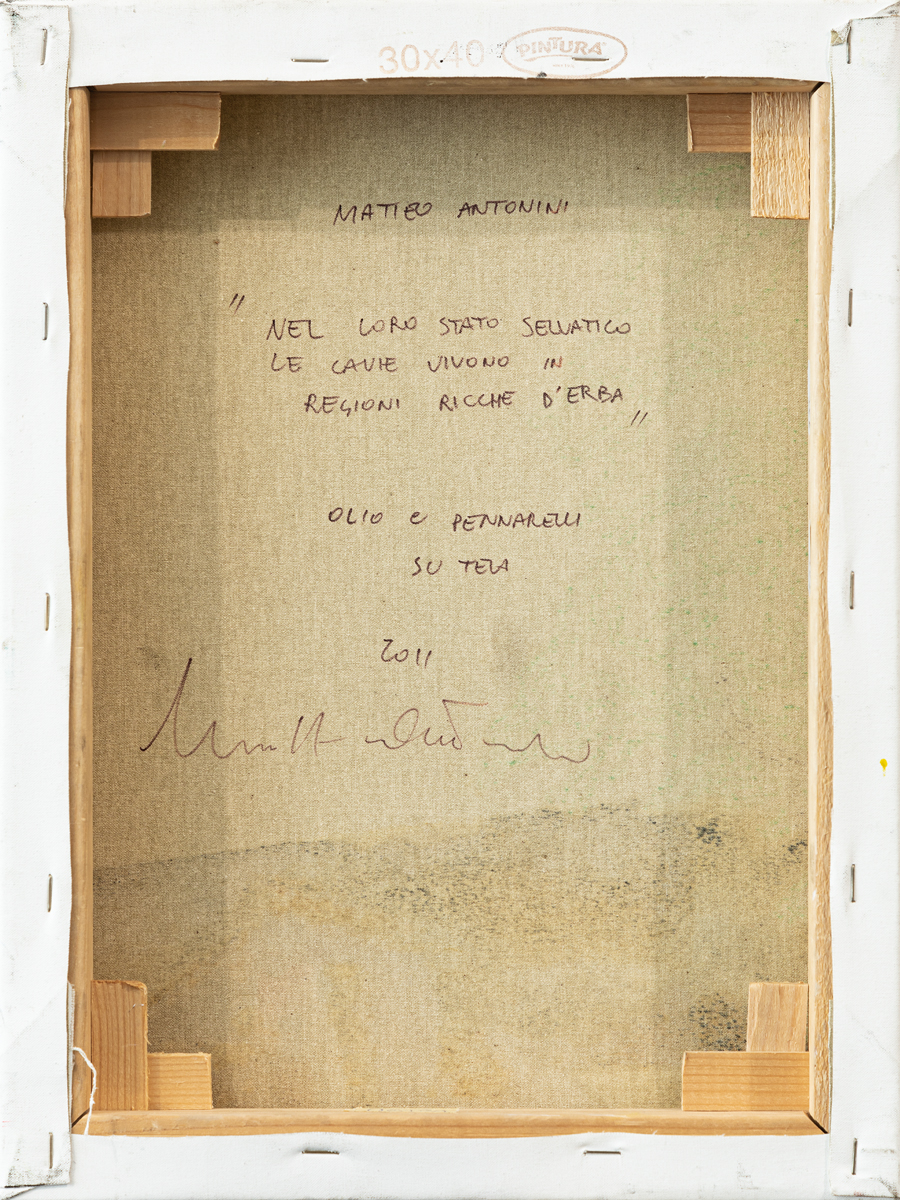 30x40 PINTURA
MATTEO ANTONINI
"NEL LORO STATO SELVATICO
LE CAVIE VIVONO IN
REGIONI RICCHE D'ERBA"
OLIO e PENNARELLI
SU TELA
2011